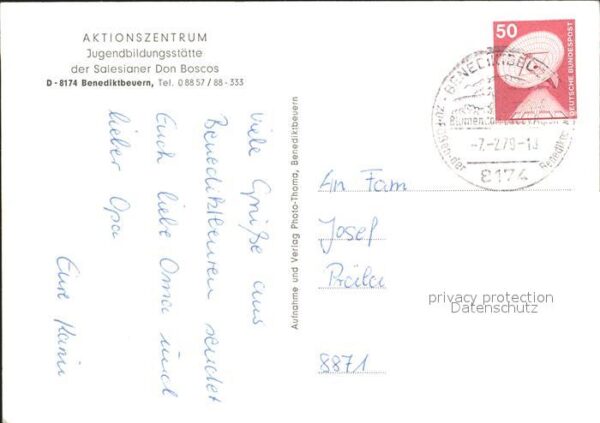 AKTIONSZENTRUM
Jugendbildungsstätte
der Salesianer Don Boscos
D - 8174 Benediktbeuern, Tel. 0 88 57 / 88 - 333
Viele Grüße aus
Benediktbeuren sendet
Euch liebe Oma und
lieber Opa
Eure Karin
Aufnahme und Verlag Photo-Thoma, Benediktbeuern
50
DEUTSCHE BUNDESPOST
BENEDIKTBEUERN
-7.-2.79-18
8174
An Fam
Josef
8871
privacy protection
Datenschutz